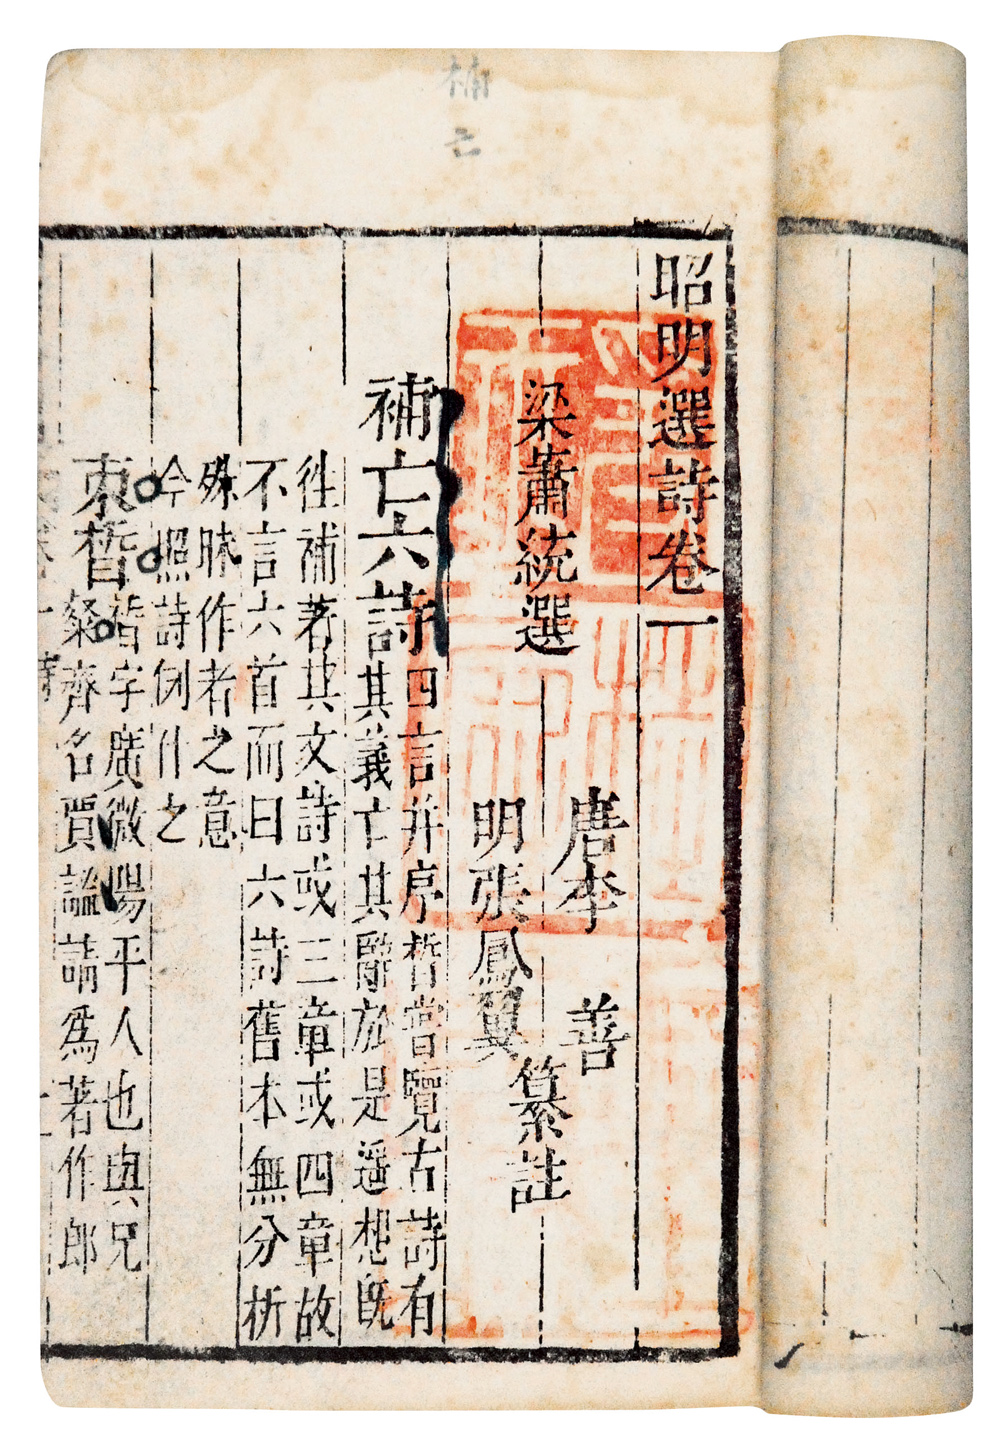 補亡
昭明選詩卷一
梁蕭統選
唐李善
明張鳳翼
纂註
補亡六詩
四言并序晳嘗覽古詩有
其義亡其辭於是遥想既
徃補著其文詩或三章或四章故
不言六首而曰六詩舊本無分析
殊昧作者之意
今照詩例什之
束晳
晳字廣微陽平人也與兄
粲齊名賈謐請為著作郎